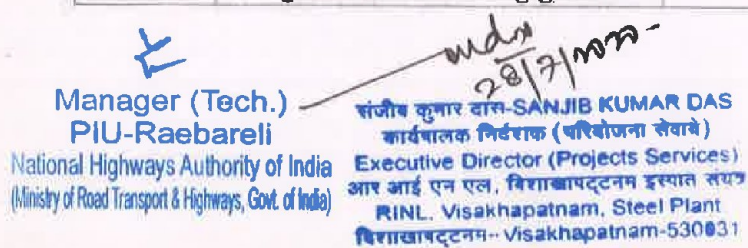 28/7/2020
Manager (Tech.)
PIU-Raebareli
National Highways Authority of India
(Ministry of Road Transport & Highways, Govt. of India)
संजीब कुमार दास-SANJIB KUMAR DAS
कार्यपालक निर्देशक (परियोजना सेवायें)
Executive Director (Projects Services)
आर आई एन एल, विशाखापट्टनम इस्पात संयंत्र
RINL, Visakhapatnam, Steel Plant
विशाखापट्टनम-- Visakhapatnam-530031